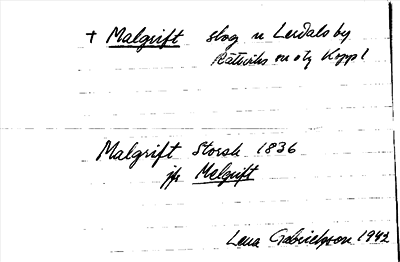 + Malgrift skog n Lerdals by
Rättviks sn o tg Koppl
Malgrift Storsk 1836
jfr Malgrift
Lena Gabrielsson 1942